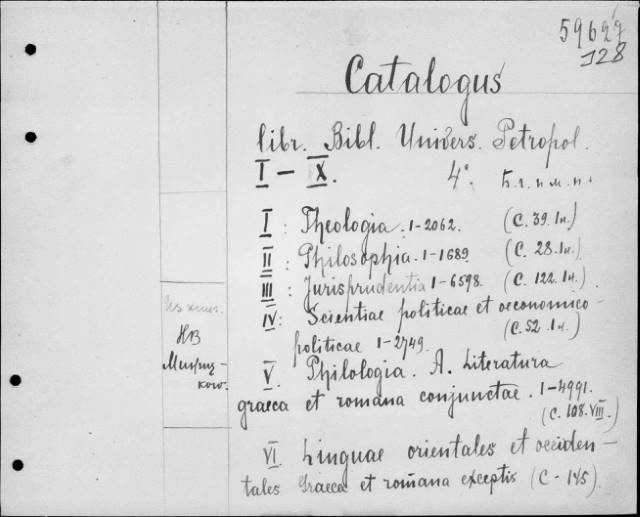 59627
J28
Catalogus
libr. Bibl. Univers. Petropol.
I — X. 4°. Б. г. и м. и.
I : Theologia. 1-2062. (С. 39. 1н.)
II : Philosophia. 1-1689. (С. 28. 1н.)
III : Jurisprudentia 1-6598. (С. 122. 1н.)
IV : Scientiae politicae et oeconomico-
politicae 1-2749. (С. 52. 1н.)
V Philologia. A. Literatura
graeca et romana conjunctae. 1-4991.
(С. 108. VIII.)
VI. Linguae orientales et occiden-
tales Graeca et romana exceptis (С - 145).
Из книг.
НВ